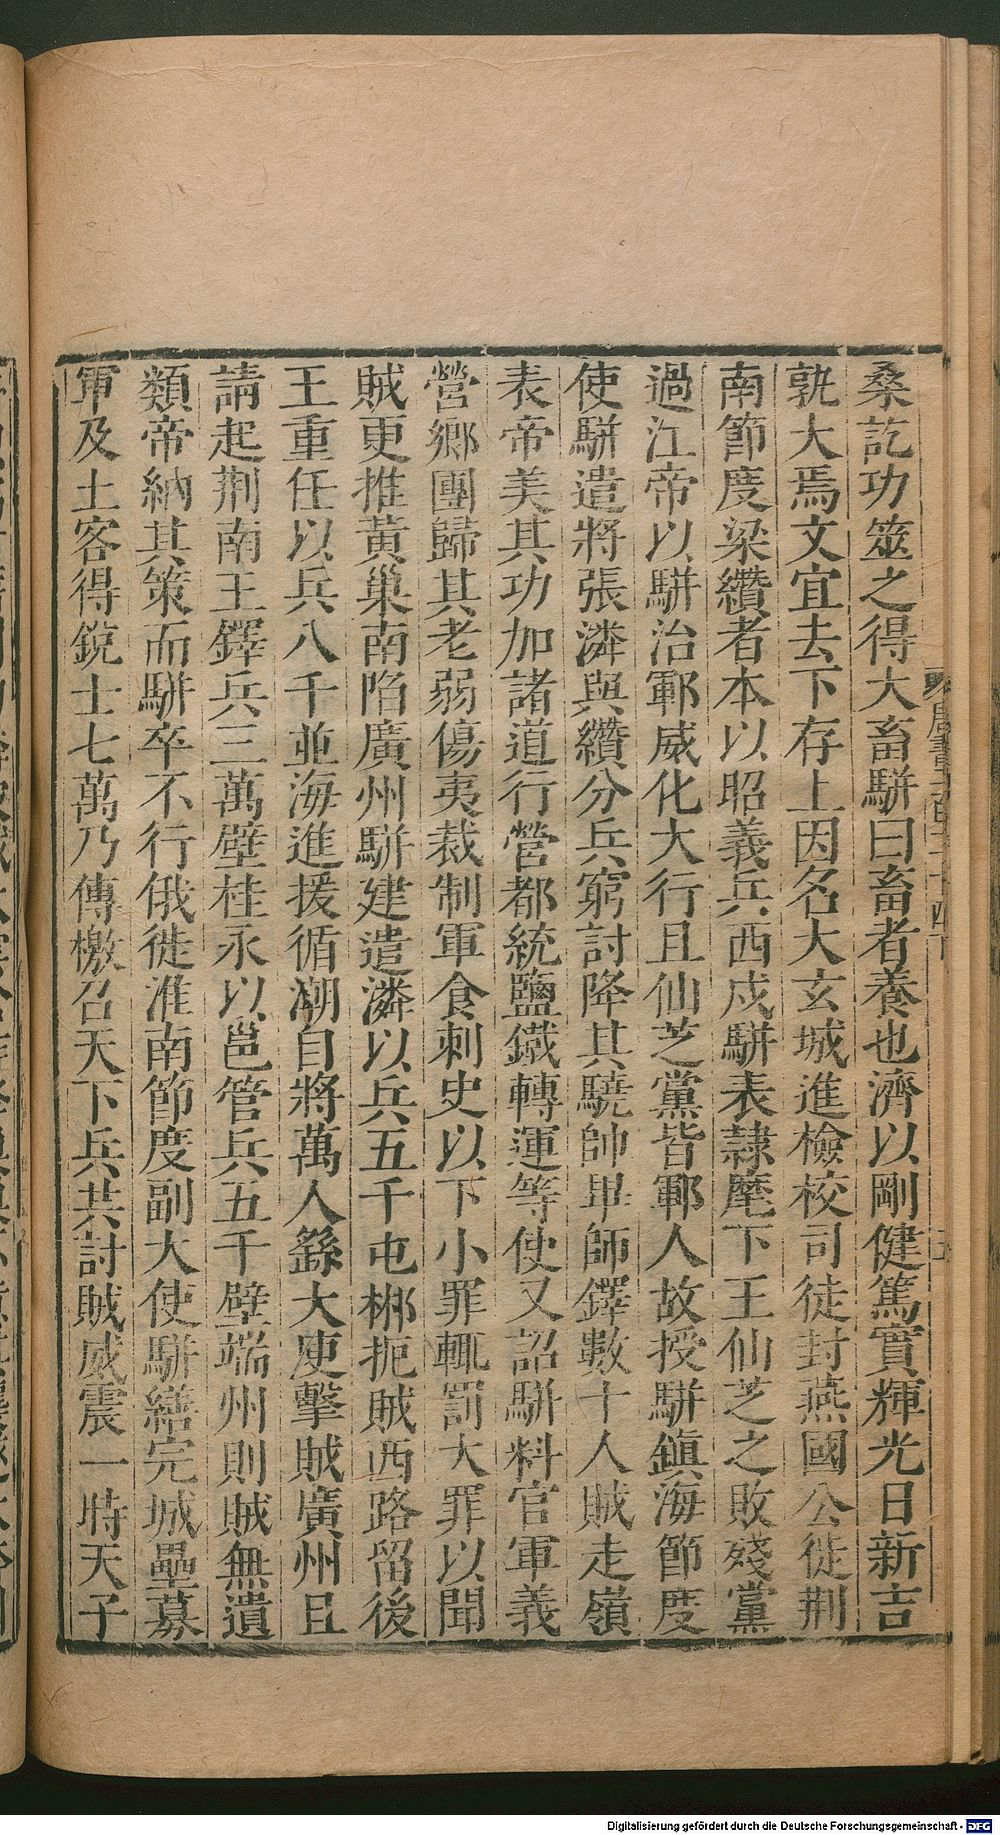 桑訖功筮之得大畜駢曰畜者養也濟以剛健篤實輝光日新吉
孰大焉文宜去下存上因名大玄城進檢校司徒封燕國公徙荆
南節度梁纘者本以昭義兵西戍駢表隷麾下王仙芝之敗殘黨
過江帝以駢治鄆威化大行且仙芝黨皆鄆人故授駢鎮海節度
使駢遣將張潾與纘分兵窮討降其驍帥畢師鐸數十人賊走嶺
表帝美其功加諸道行營都統鹽鐵轉運等使又詔駢料官軍義
營鄉團歸其老弱傷夷裁制軍食刺史以下小罪輒罰大罪以聞
賊更推黃巢南陷廣州駢建遣潾以兵五千屯郴扼賊西路留後
王重任以兵八千並海進援循潮自將萬人繇大庾擊賊廣州且
請起荆南王鐸兵三萬壁桂永以邕管兵五千壁端州則賊無遺
類帝納其策而駢卒不行俄徙淮南節度副大使駢繕完城壘募
軍及土客得銳士七萬乃傳檄召天下兵共討賊威震一時天子
Digitalisierung gefördert durch die Deutsche Forschungsgemeinschaft - DFG